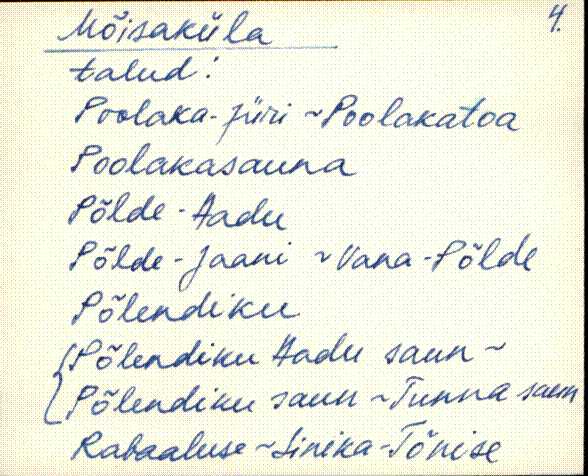 4.
Mõisaküla
talud:
Poolaka-Jüri ~ Poolakatoa
Poolakasauna
Põlde-Aadu
Põlde-Jaani ~ Vana-Põlde
Põlendiku
Põlendiku Aadu saun ~
Põlendiku saun ~ Tunna saun
Rabaaluse ~ Sinika-Tõnise